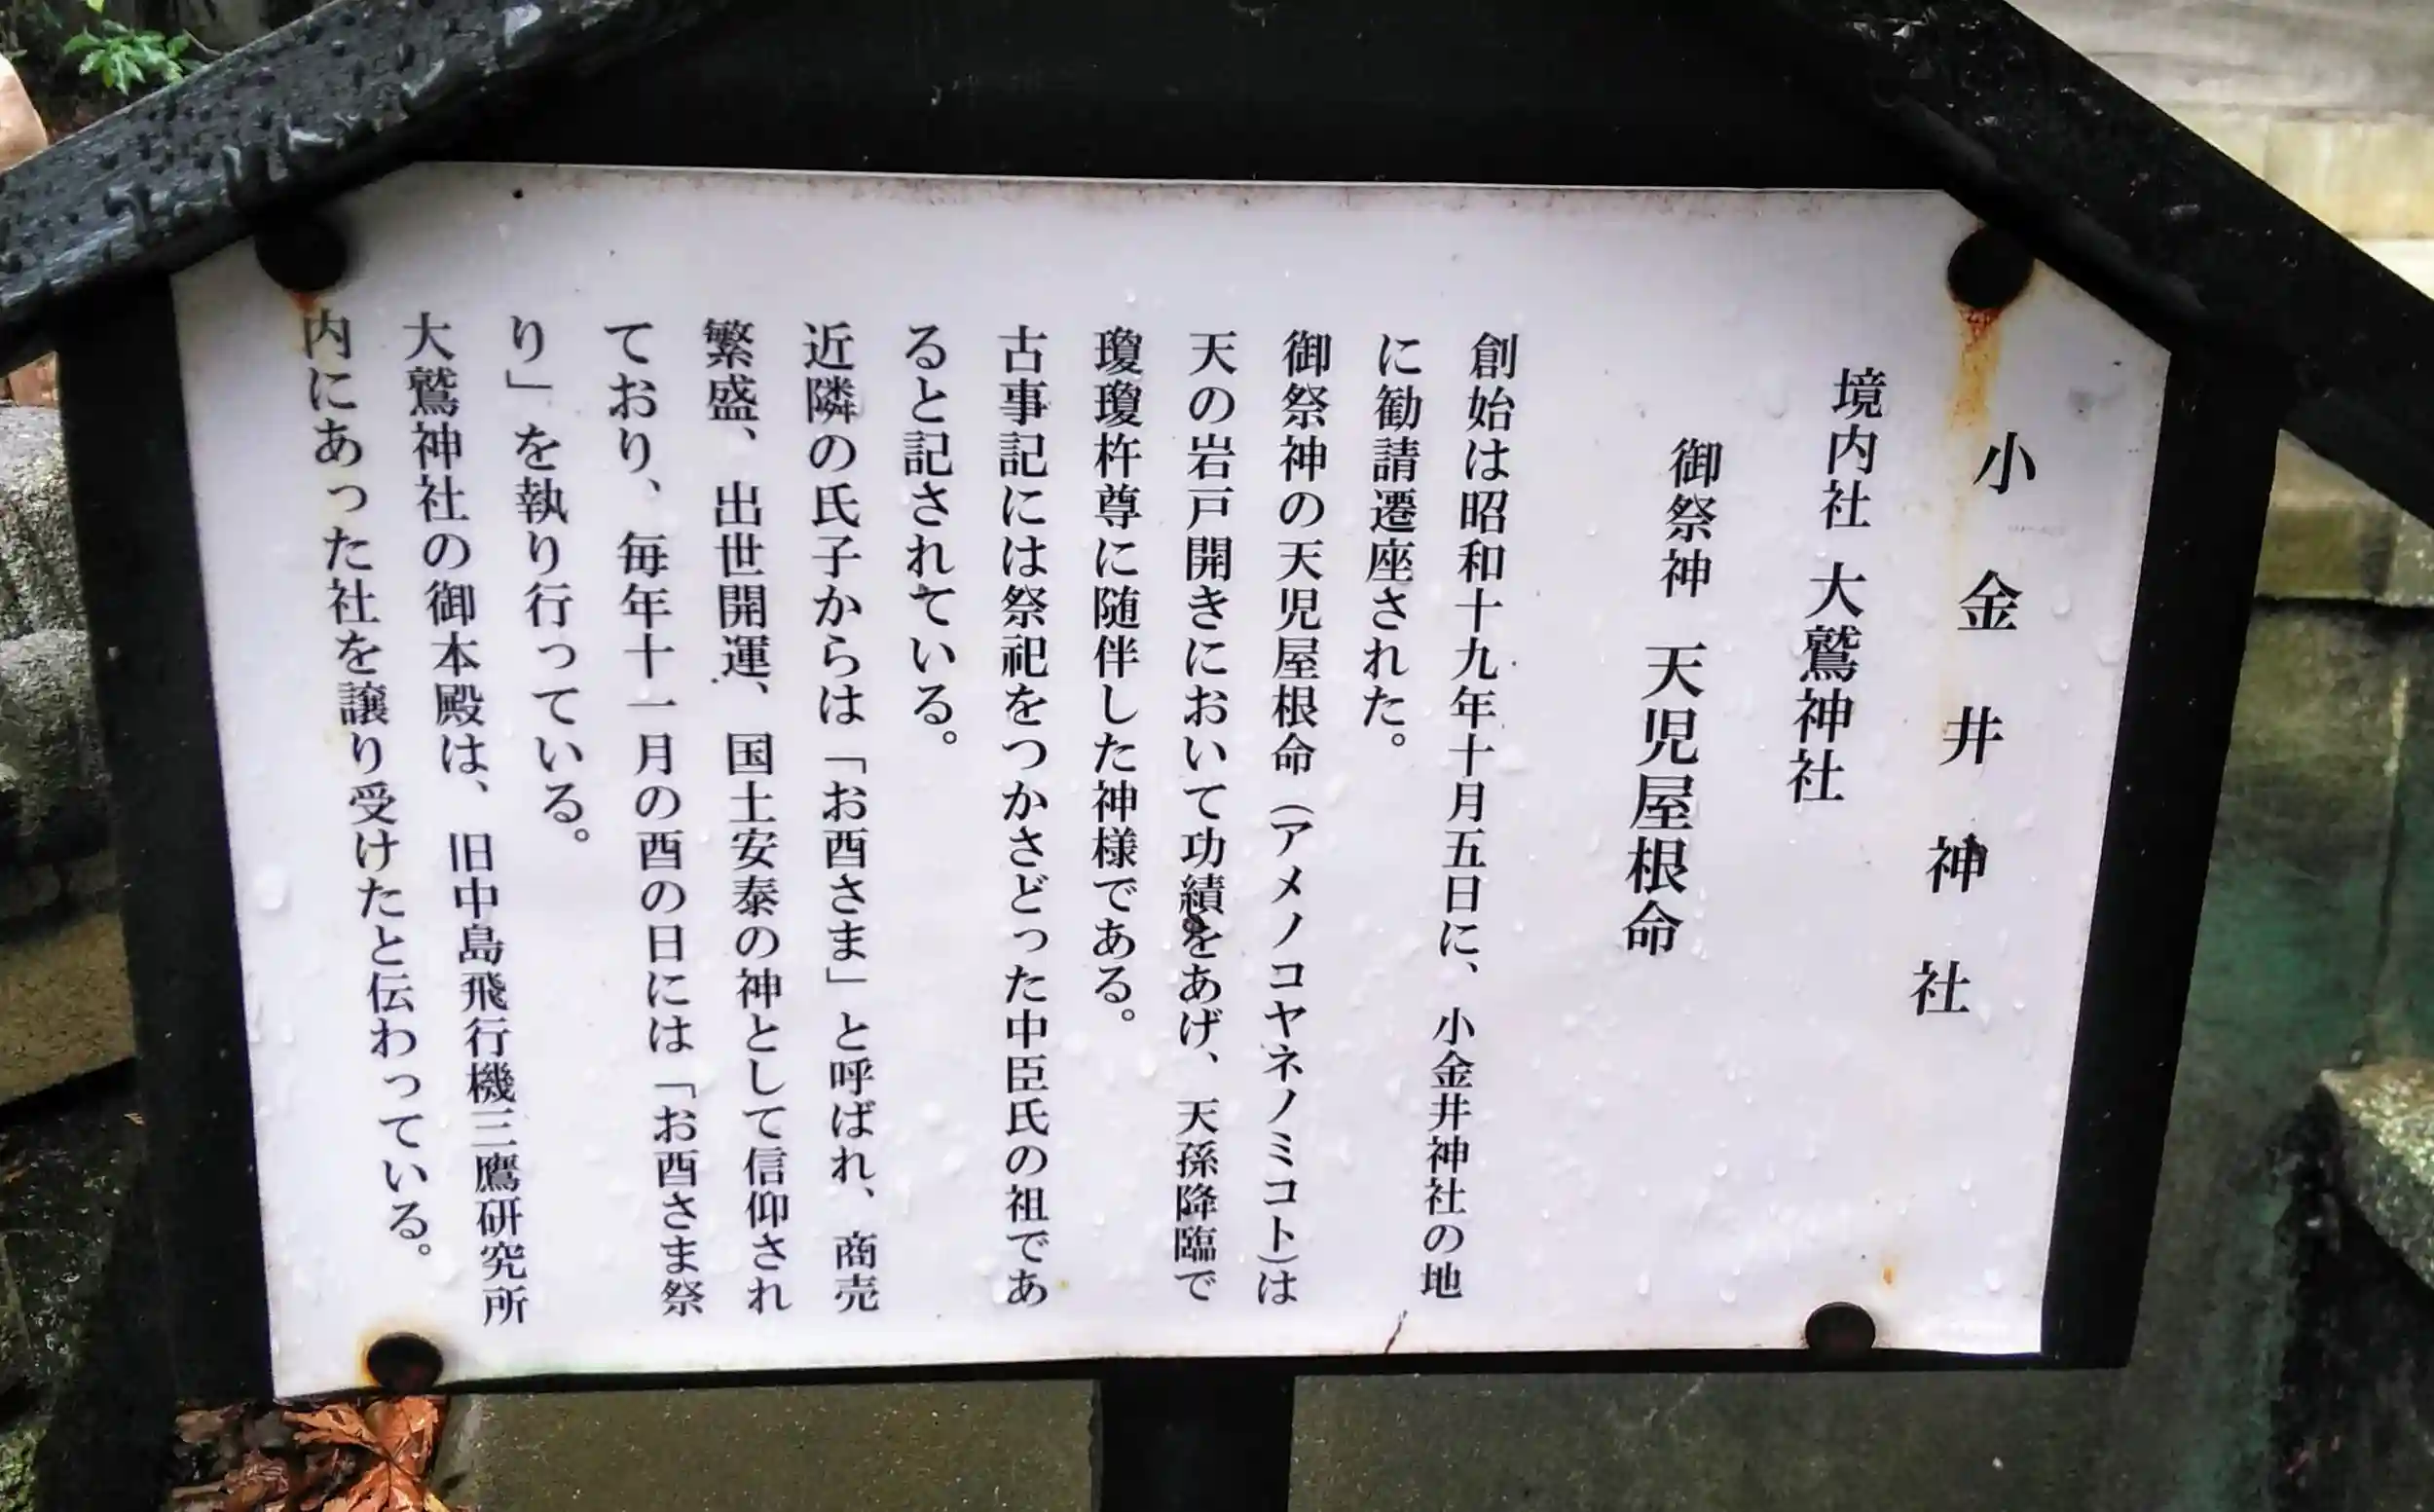 小金井神社
境内社 大鷲神社
御祭神 天児屋根命
創始は昭和十九年十月五日に、小金井神社の地
に勧請遷座された。
御祭神の天児屋根命（アメノコヤネノミコト）は
天の岩戸開きにおいて功績をあげ、天孫降臨で
瓊瓊杵尊に随伴した神様である。
古事記には祭祀をつかさどった中臣氏の祖であ
ると記されている。
近隣の氏子からは「お酉さま」と呼ばれ、商売
繁盛、出世開運、国土安泰の神として信仰され
ており、毎年十一月の酉の日には「お酉さま祭
り」を執り行っている。
大鷲神社の御本殿は、旧中島飛行機三鷹研究所
内にあった社を譲り受けたと伝わっている。